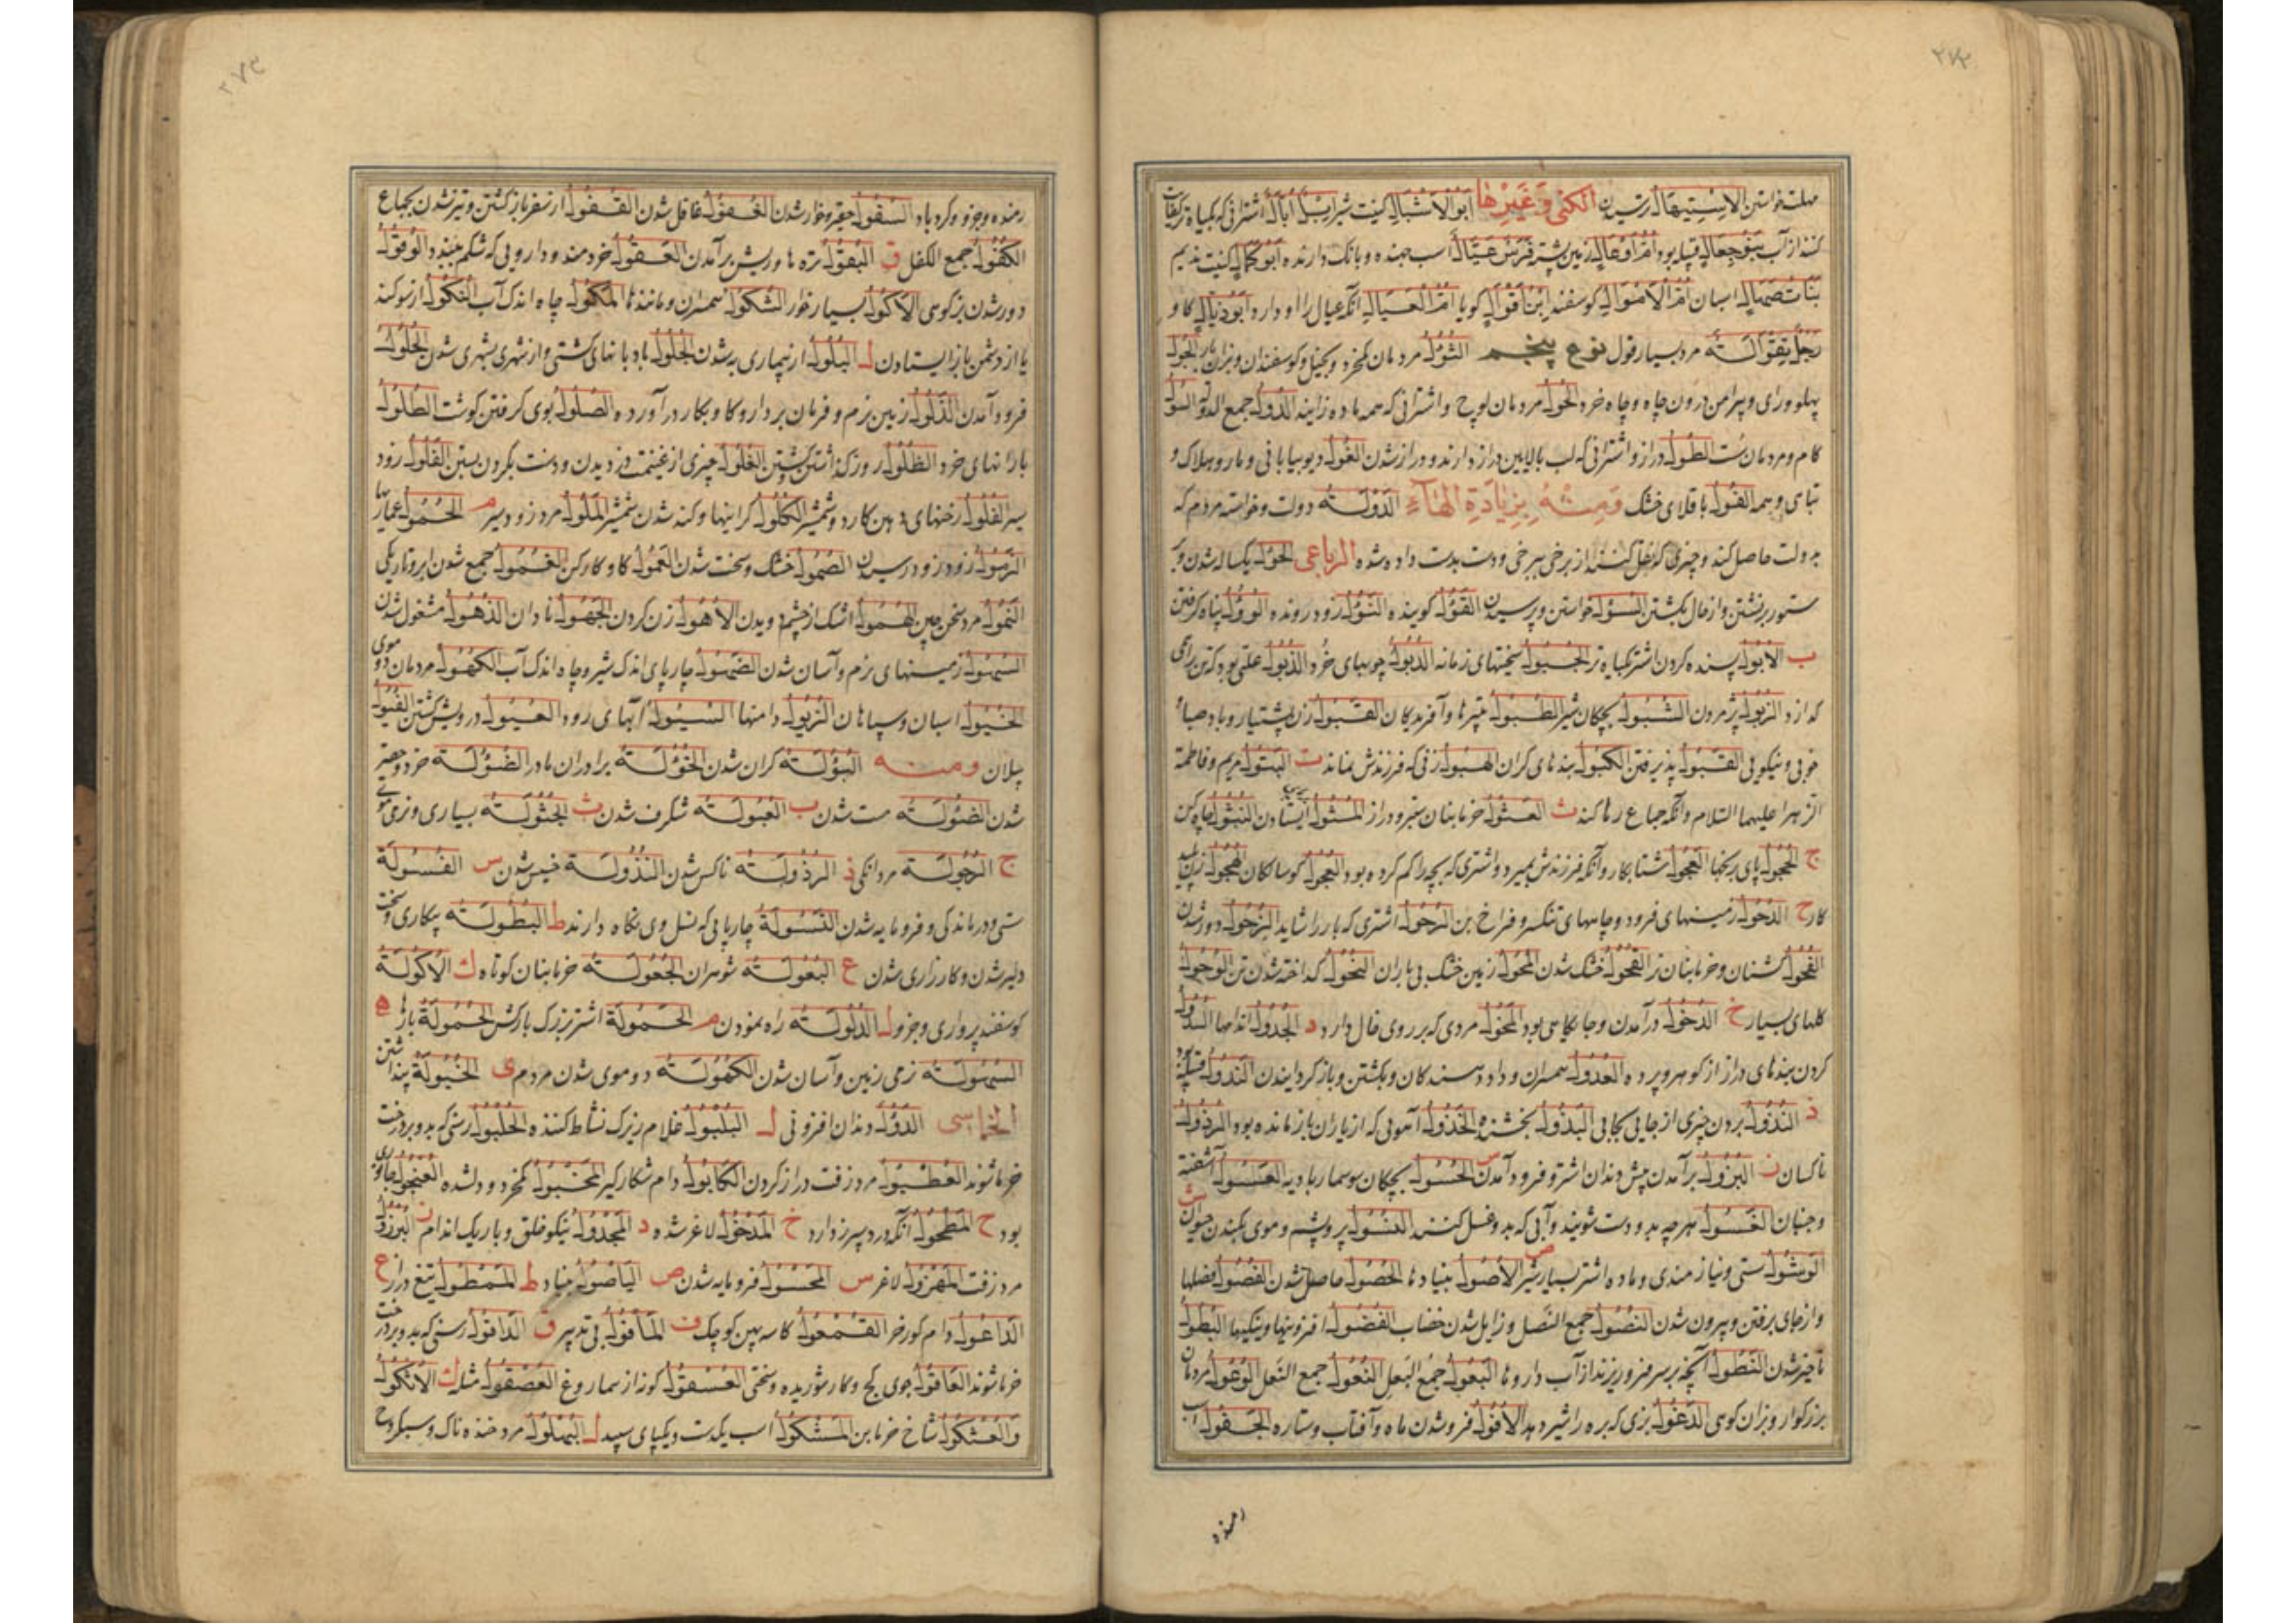 ۲۷۲
مهلت خواستن الاستیهال ترسیدن الکنی وغیرها ابو الاشبال کنیت شیر ابل ابال اشترانی که بگیاه تر کفایت
کنند از آب بنو جعال قبیله بود ام اوعال زمین پشته فرس عیال اسب جهنده و بانک دارنده ابو کمال کنیت ندیم
بنات صهال اسبان ام الاموال کوسفند ابن اقوال کویا ام العیال آنکه عیال را او دارد ابو ذیال کاو
رجل تقوالة مرد بسیار قول نوع پنجم الثول مردمان کم خرد و بخیل و کوسفندان و بزان الجول
پهلو ورای و پیرامن درون چاه و چاه خرد الحول مردمان لوچ و اشترانی که همه ماده زایند الدول جمع الدولة السول
کام و مردمان سست الطول دراز و اشترانی که لب بالایین دراز دارند و دراز شدن الغول دیو بیابانی و مار و هلاک و
تباهی و همه الفول باقلای خشک ومنه بزیادة الهاء الدولة دولت و خواسته مردم که
بدولت حاصل کند و چیزی که نقل کنند از برخی ببرخی و دست بدست داده شده الرباعی الحول یکساله شدن و بر
ستور برنشتن و از حال بکشتن السؤل خواستن و پرسیدن القول کوینده النؤل زود رونده الوؤل پناه کرفتن
ب الابول بسنده کردن اشتر بگیاه تر الحبول سختیهای زمانه الدبول جویهای خرد الذبول علتی بود که تن را همی
کدازد الزبول پژمردن الشبول بچکان شیر الطبول تبیرها و آفریدکان القبول زن پشتیار و باد صبا و
خوبی و نیکویی القبول پذیرفتن الکبول بندهای کران الهبول زنی که فرزندش نماند ت البتول مریم و فاطمة
الزهرا علیهما السلام و آنکه جماع رها کند ث العثول خرمابنان ستبر و دراز المثول ایستادن النثول چاه کن
ج الحجول پای برنجنها العجول شتابکار و آنکه فرزندش بمیرد و اشتری که بچه را کم کرده بود العجول کوسالکان الهجول زن پلید
کار ح الدحول زمینهای فرود و چاههای تنک سر و فراخ بن الرحول اشتری که بار را شاید الزحول دور شدن
الفحول کشنان و خرمابنان نر القحول خشک شدن المحول زمین خشک بی باران النحول کداخته شدن تن الوحول
کلهای بسیار خ الدخول درآمدن و جایکاهی بود المخول مردی که بر روی خال دارد د الجدول اندامها السدول
کردن بندهای دراز از کوهر و پرده العدول همسران و داد دهندکان و بکشتن و بازکردانیدن الندول قبیله
ذ النذول بردن چیزی از جایی بجایی البذول بخشنده الخذول آهویی که از یاران باز مانده بود الرذول
ناکسان ز البزول برآمدن پیش دندان اشتر و فرود آمدن س الحسول بچکان سوسمار بادیه العسول آشفته
و جنبان الغسول هرچه بدو دست شویند و آبی که بدو غسل کنند النسول پر و پشم و موی بکندن حیوان ش
الوشول سستی و نیازمندی و ماده اشتر بسیار شیر ص الاصول بنیادها الحصول حاصل شدن الفصول فصلها
و از جای برفتن و بیرون شدن النصول جمع النصل و زایل شدن خضاب الفضول افزونیها و نیکیها البطول
ناچیز شدن النطول آنچه بر سر فرو ریزند از آب داروها البعول جمع البعل النعول جمع النعل الوعول مردمان
بزرکوار و بزان کوهی الدغول بزی که بره را شیر دهد الافول فرو شدن ماه و آفتاب و ستاره الجفول اب
رمنده
۲۷۳
رمنده و جزو و کرد باد السفول حقیر و خوار شدن الغفول غافل شدن القفول از سفر باز کشتن و تیز شدن بجماع
الکفول جمع الکفل ق البقول ترها و ریش برآمدن العقول خردمند و دارویی که شکم ببندد الوقول
دور شدن بز کوهی الاکول بسیار خوار الشکول همسران و مانندها المکول چاه اندک آب النکول از سوکند
یا از دشمن باز ایستادن ل البلول از بیماری به شدن الجلول بادبانهای کشتی و از شهری بشهری شدن الحلول
فرود آمدن الذلول زمین نرم و فرمان بردار و کاو بکار درآورده الصلول بوی کرفتن کوشت الطلول
بارانهای خرد الظلول روز کذاشتن کشتن الغلول چیزی از غنیمت دزدیدن و دست بکردن بستن الفلول زود
سیر الفلول رخنهای دهن کارد و شمشیر الکلول کرانیها و کند شدن شمشیر الملول مرد زود سیر م الحمول عماریها
الزمول زود زود رسیدن الصمول خشک و سخت شدن العمول کاو کارکن الغمول جمع شدن ابر و تاریکی
النمول مرد سخن چین الهمول اشک از چشم دویدن الاهول زن کردن الجهول نادان الذهول مشغول شدن
السهول زمینهای نرم و آسان شدن الضهول چارپای اندک شیر و چاه اندک آب الکهول مردمان دو موی
الخیول اسبان و سپاهان الذیول دامنها السیول آبهای رود العیول درویش کشتن الفیول
پیلان ومنه البؤلة کران شدن الخؤلة برادران مادر الضؤلة خرد و حقیر
شدن الضؤلة مست شدن ب العبولة شکرف شدن ث الجثولة بسیاری و نرمی موی
ج الرجولة مردانکی ذ الرذولة ناکس شدن النذولة خسیس شدن س الفسولة
سستی و درماندکی و فرومایه شدن النسولة چارپایی که نسل وی نکاه دارند ط البطولة بیکاری و سخت
دلیر شدن و کارزاری شدن ع البعولة شوهران الجعولة خرمابنان کوتاه ك الاکولة
کوسفند پرواری و جزو ل الدلولة راه نمودن م الحمولة اشتر بزرک بارکش الحمولة بارها ه
السهولة نرمی زمین و آسان شدن الکهولة دو موی شدن مردم ی الخیولة پنداشتن
الخماسی الدؤل دندان افزونی ل البلبول غلام زیرک نشاط کننده الحلبول رسنی که بدو بر درخت
خرما شوند العطبول مرد زفت دراز کردن الکابول دام شکار کیر المخبول کم خرد و دلشده العنجول جانوری
بود ح المطحول آنکه درد سپرز دارد خ المدخول لاغر شده د المجدول نیکو خلق و باریک اندام ز البرزول
مرد زفت المهزول لاغر س المحسول فرومایه شدن ص الیاصول بنیاد ط الممطول تیغ دراز ع
الداعول دام کور خر القمعول کاسه پهن کوچک ف المأفول بی تدبیر ق الداقول رسنی که بدو بر درخت
خرما شوند العاقول جوی کج و کار شوریده و سختی العسقول کونه از سماروغ العصقول مثله ك الاثکول
والعثکول شاخ خرمابن المشکول اسب یکدست و یکپای سپید ل البهلول مرد خنده ناک و سبکروح